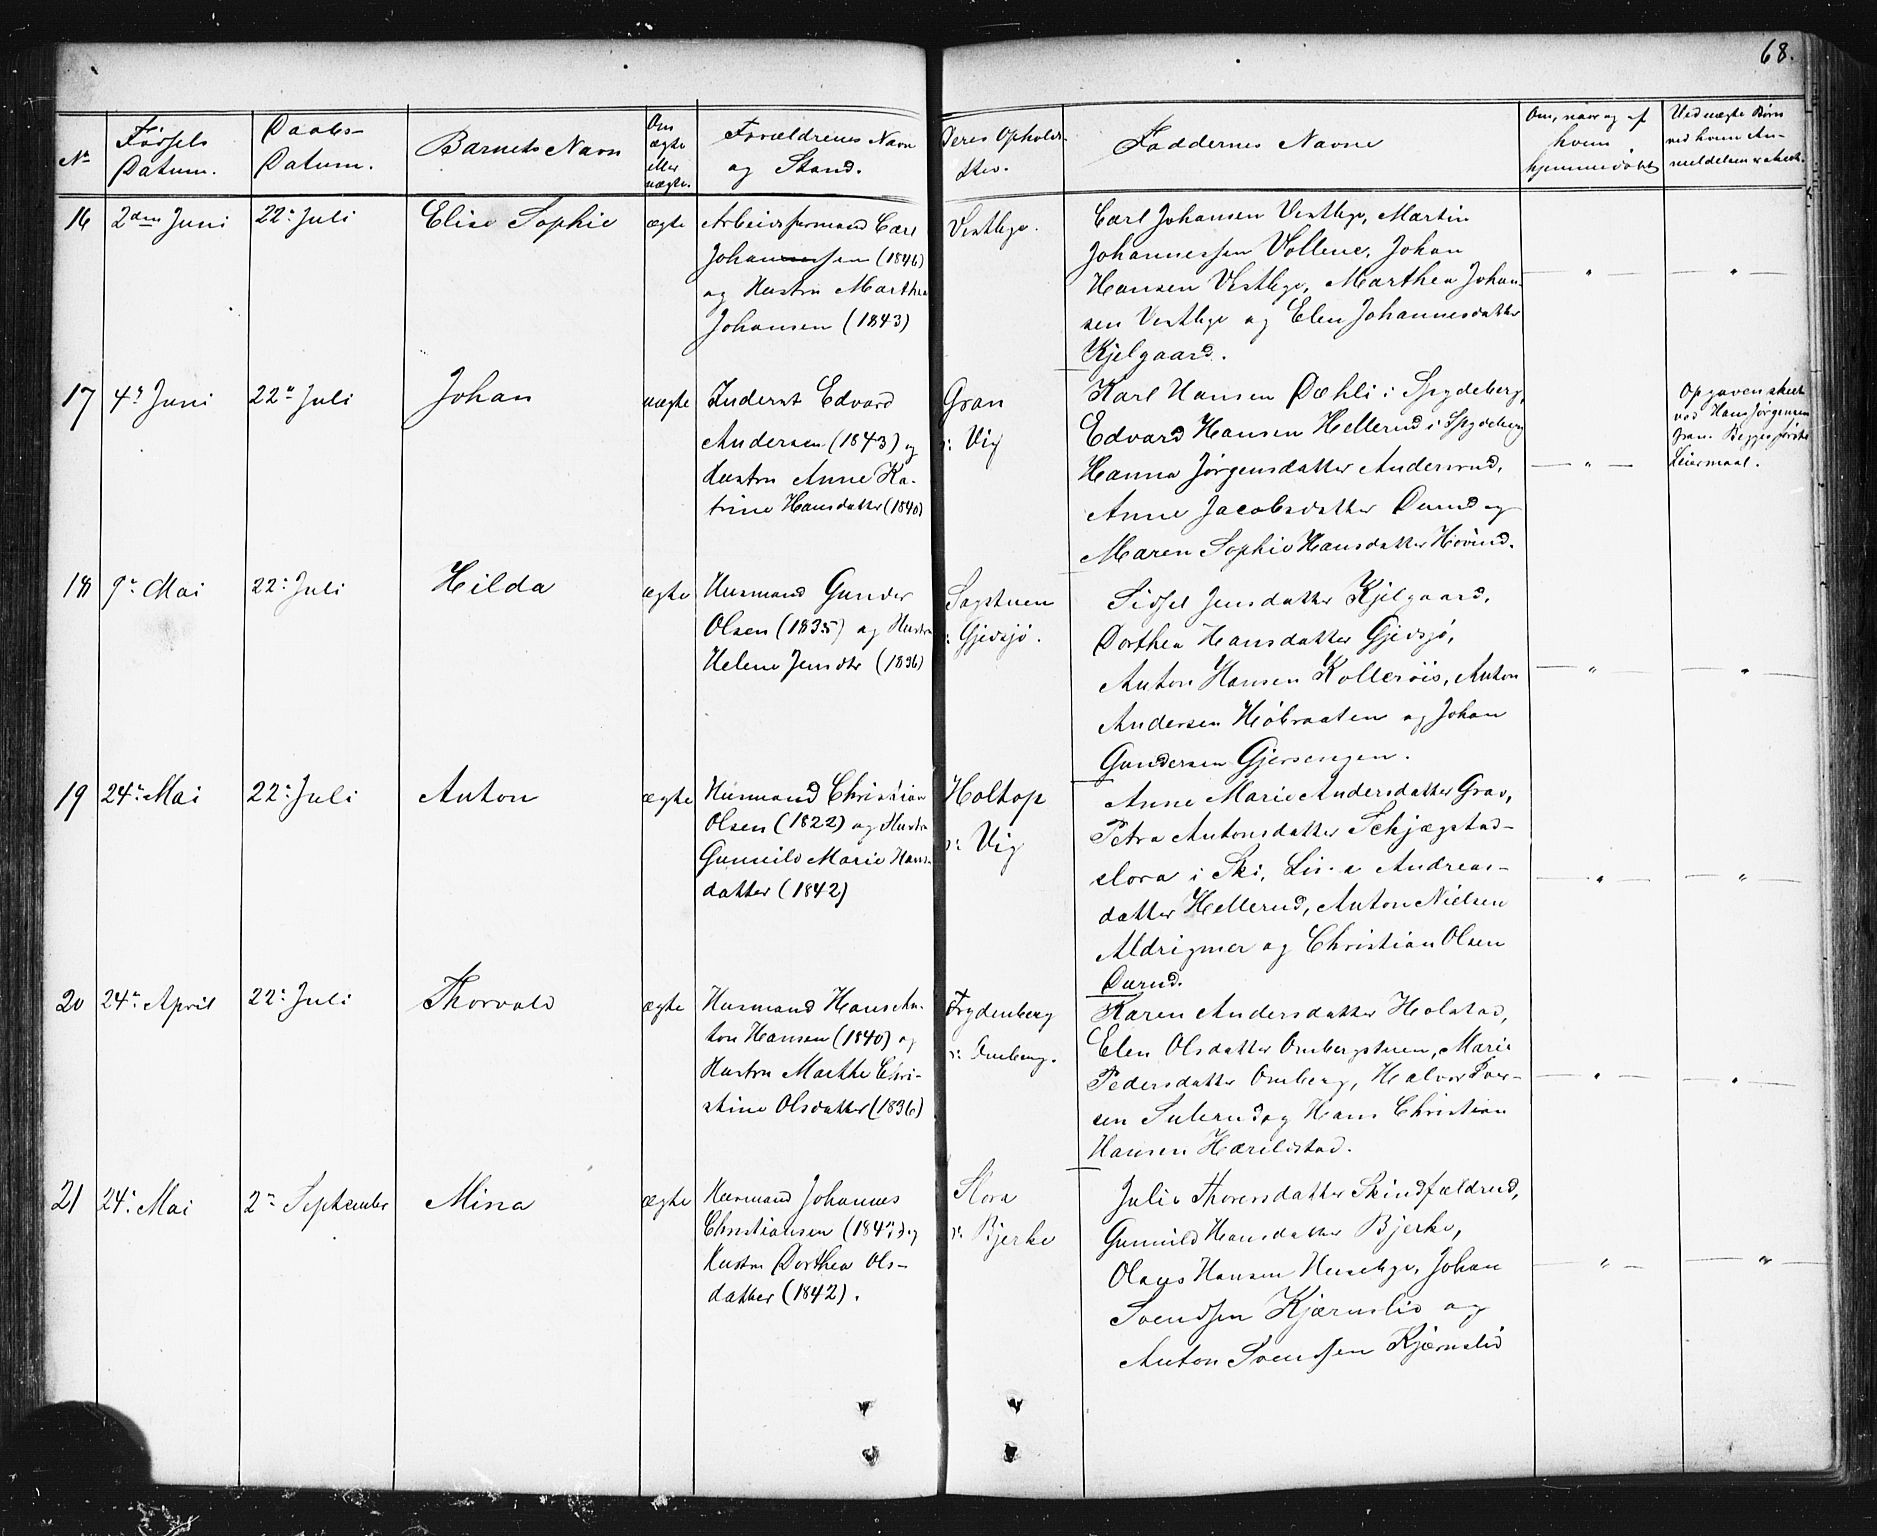 68.
No
Fødsels
Datum.
Daabs-
Datum.
Barnets Navn
Om
ægte
eller
uægte.
Forældrenes Navn
og Stand.
Deres Opholds-
Sted.
Faddernes Navne
Om, naar og af
hvem
hjemmedøbt
Ved uægte Børn
ved hvem An-
meldelsen er skeet.
16
2den Juni
22: Juli
Elise Sophie
ægte
Arbeidsformand Carl
Johannessen (1846)
og Hustru Marthea
Johansen (1843)
Vestbye.
Carl Johansen Vestbye, Martin
Johannessen Vollene, Johan
Hansen Vestbye, Marthea Johan-
sen Vestbye og Elen Johannesdatter
Kjelgaard.
17
4: Juni
22: Juli
Johan
uægte
Inderst Edvard
Andersen (1843) og
Hustru Anne Ka-
trine Hansdatter (1840)
Gran
v: Vig
Karl Hansen Dæhli i Spydeberg,
Edvard Hansen Hellerud i Spydeberg
Hanna Jørgensdatter Andersrud,
Anne Jacobsdatter Durud og
Maren Sophie Hansdatter Høvind.
Opgaven skeet
ved Hans Jørgensen
Gran. Begges første
Leiermaal.
18
9: Mai
22: Juli
Hilda
ægte
Husmand Gunder
Olsen (1835) og Hustru
Helene Jensdtr (1836)
Sagstuen
v: Gjevsjø.
Sidsel Jensdatter Kjelgaard,
Dorthea Hansdatter Gjevsjø,
Anton Hansen Kollerøis, Anton
Andersen Høbraaten og Johan
Gundersen Gjersengen.
19
24: Mai
22: Juli
Anton
ægte
Husmand Christian
Olsen (1822) og Hustru
Gunnild Marie Hans-
datter (1842)
Holtop
v: Vig
Anne Marie Andersdatter Grav,
Petra Antonsdatter Schjægstad-
slora i Ski, Andreas-
datter Hellerud, Anton Nielsen
Aldrigmer og Christian Olsen
Durud.
20
24: April
22: Juli
Thorvald
ægte
Husmand Hans An-
ton Hansen (1840) og
Hustru Marthe Chri-
stine Olsdatter (1836)
Frydenberg
v: Omberg.
Karen Andersdatter Holstad,
Elen Olsdatter Ombergstuen, Marie
Pedersdatter Omberg, Halvor Iver-
sen Sulerud og Hans Christian
Hansen Hærlistad.
21
24: Mai
2: September
Mina
ægte
Husmand Johannes
Christiansen og
Hustru Dorthea Ols-
datter (1842).
Slora
v: Bjerke
Julie Thorersdatter Skindfældrud,
Gunnild Hansdatter Bjerke,
Olaus Hansen Husebye, Johan
Svendsen Kjærnslid og
Anton Svendsen Kjærnslid